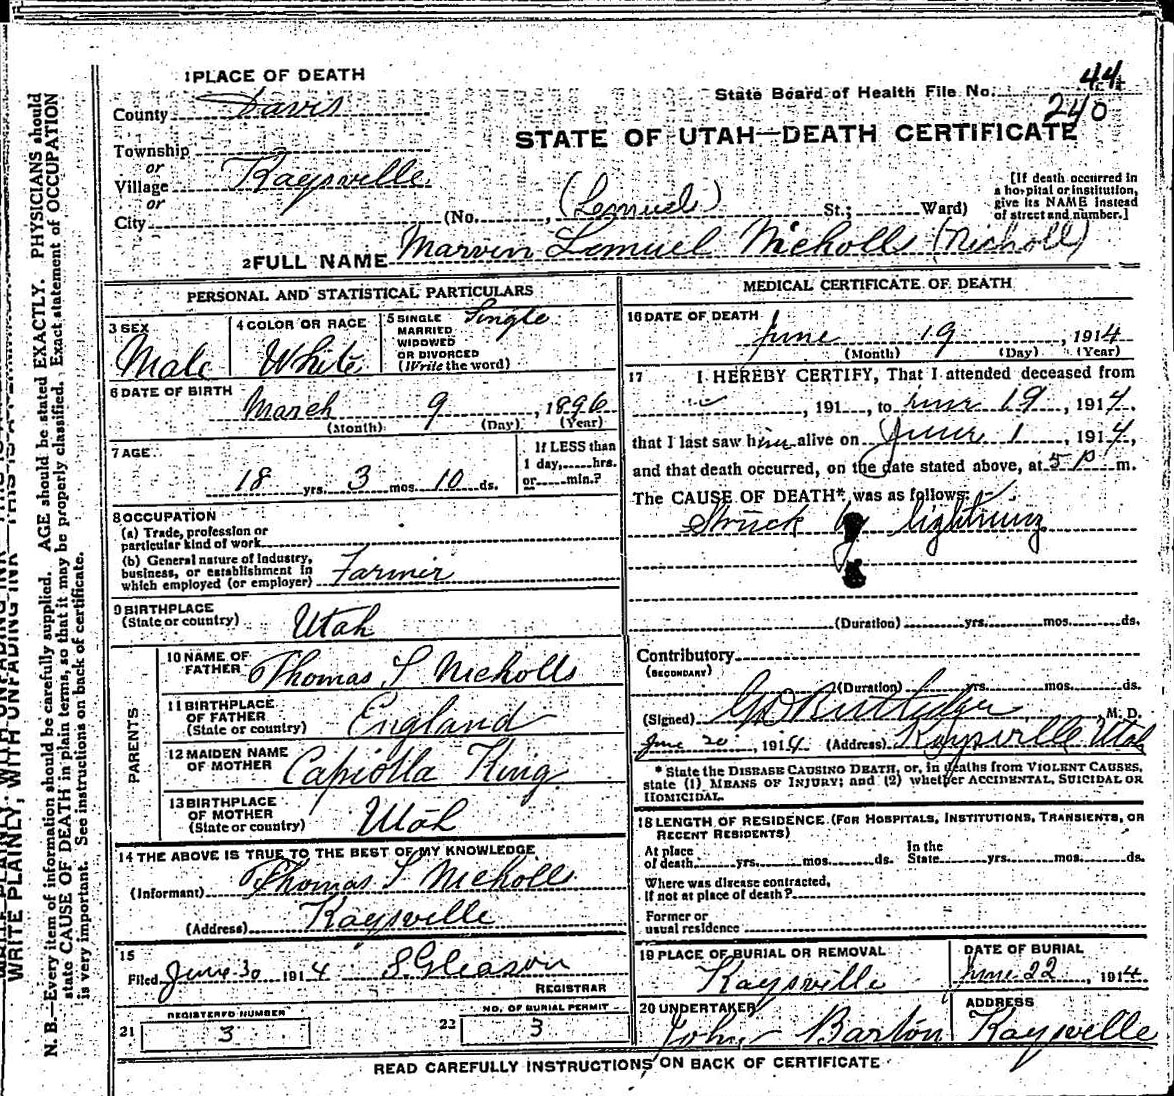 1 PLACE OF DEATH
County Davis
Township
or
Village Kaysville
or
City
State Board of Health File No. 44
240
STATE OF UTAH—DEATH CERTIFICATE
[If death occurred in a hospital or institution, give its NAME instead of street and number.]
(No. , (Lemuel) St.; Ward)
2 FULL NAME Marvin Lemuel Nicholls (Nicholl)
PERSONAL AND STATISTICAL PARTICULARS
3 SEX Male
4 COLOR OR RACE White
5 SINGLE MARRIED WIDOWED OR DIVORCED (Write the word) Single
6 DATE OF BIRTH
March 9, 1896
(Month) (Day) (Year)
7 AGE
18 yrs. 3 mos. 10 ds.
If LESS than 1 day, hrs. or min.?
8 OCCUPATION
(a) Trade, profession or
particular kind of work
(b) General nature of industry,
business, or establishment in
which employed (or employer) Farmer
9 BIRTHPLACE
(State or country) Utah
PARENTS
10 NAME OF
FATHER Thomas S Nicholls
11 BIRTHPLACE
OF FATHER
(State or country) England
12 MAIDEN NAME
OF MOTHER Capiolla King
13 BIRTHPLACE
OF MOTHER
(State or country) Utah
14 THE ABOVE IS TRUE TO THE BEST OF MY KNOWLEDGE
(Informant) Thomas S Nicholls
(Address) Kaysville
15
Filed June 30 1914 S. Gleason
REGISTRAR
REGISTERED NUMBER
21 3
NO. OF BURIAL PERMIT
22 3
MEDICAL CERTIFICATE OF DEATH
16 DATE OF DEATH
June 19, 1914
(Month) (Day) (Year)
17 I HEREBY CERTIFY, That I attended deceased from
, 191 , to June 19, 1914,
that I last saw him alive on June 1, 1914,
and that death occurred, on the date stated above, at 5 P m.
The CAUSE OF DEATH* was as follows:
Struck by lightning
(Duration) yrs. mos. ds.
Contributory
(SECONDARY)
(Duration) yrs. mos. ds.
(Signed) G D Rutledge, M. D.
June 20, 1914 (Address) Kaysville Utah
* State the DISEASE CAUSING DEATH, or, in deaths from VIOLENT CAUSES,
state (1) MEANS OF INJURY; and (2) whether ACCIDENTAL, SUICIDAL OR
HOMICIDAL.
18 LENGTH OF RESIDENCE (FOR HOSPITALS, INSTITUTIONS, TRANSIENTS, OR
RECENT RESIDENTS)
At place
of death yrs. mos. ds. In the State yrs. mos. ds.
Where was disease contracted,
if not at place of death?
Former or
usual residence
19 PLACE OF BURIAL OR REMOVAL
Kaysville
DATE OF BURIAL
June 22, 1914
20 UNDERTAKER
John Barton
ADDRESS
Kaysville
READ CAREFULLY INSTRUCTIONS ON BACK OF CERTIFICATE
WRITE PLAINLY, WITH UNFADING INK
N. B.—Every item of information should be carefully supplied. AGE should be stated EXACTLY. PHYSICIANS should
state CAUSE OF DEATH in plain terms, so that it may be properly classified. Exact statement of OCCUPATION
is very important. See instructions on back of certificate.